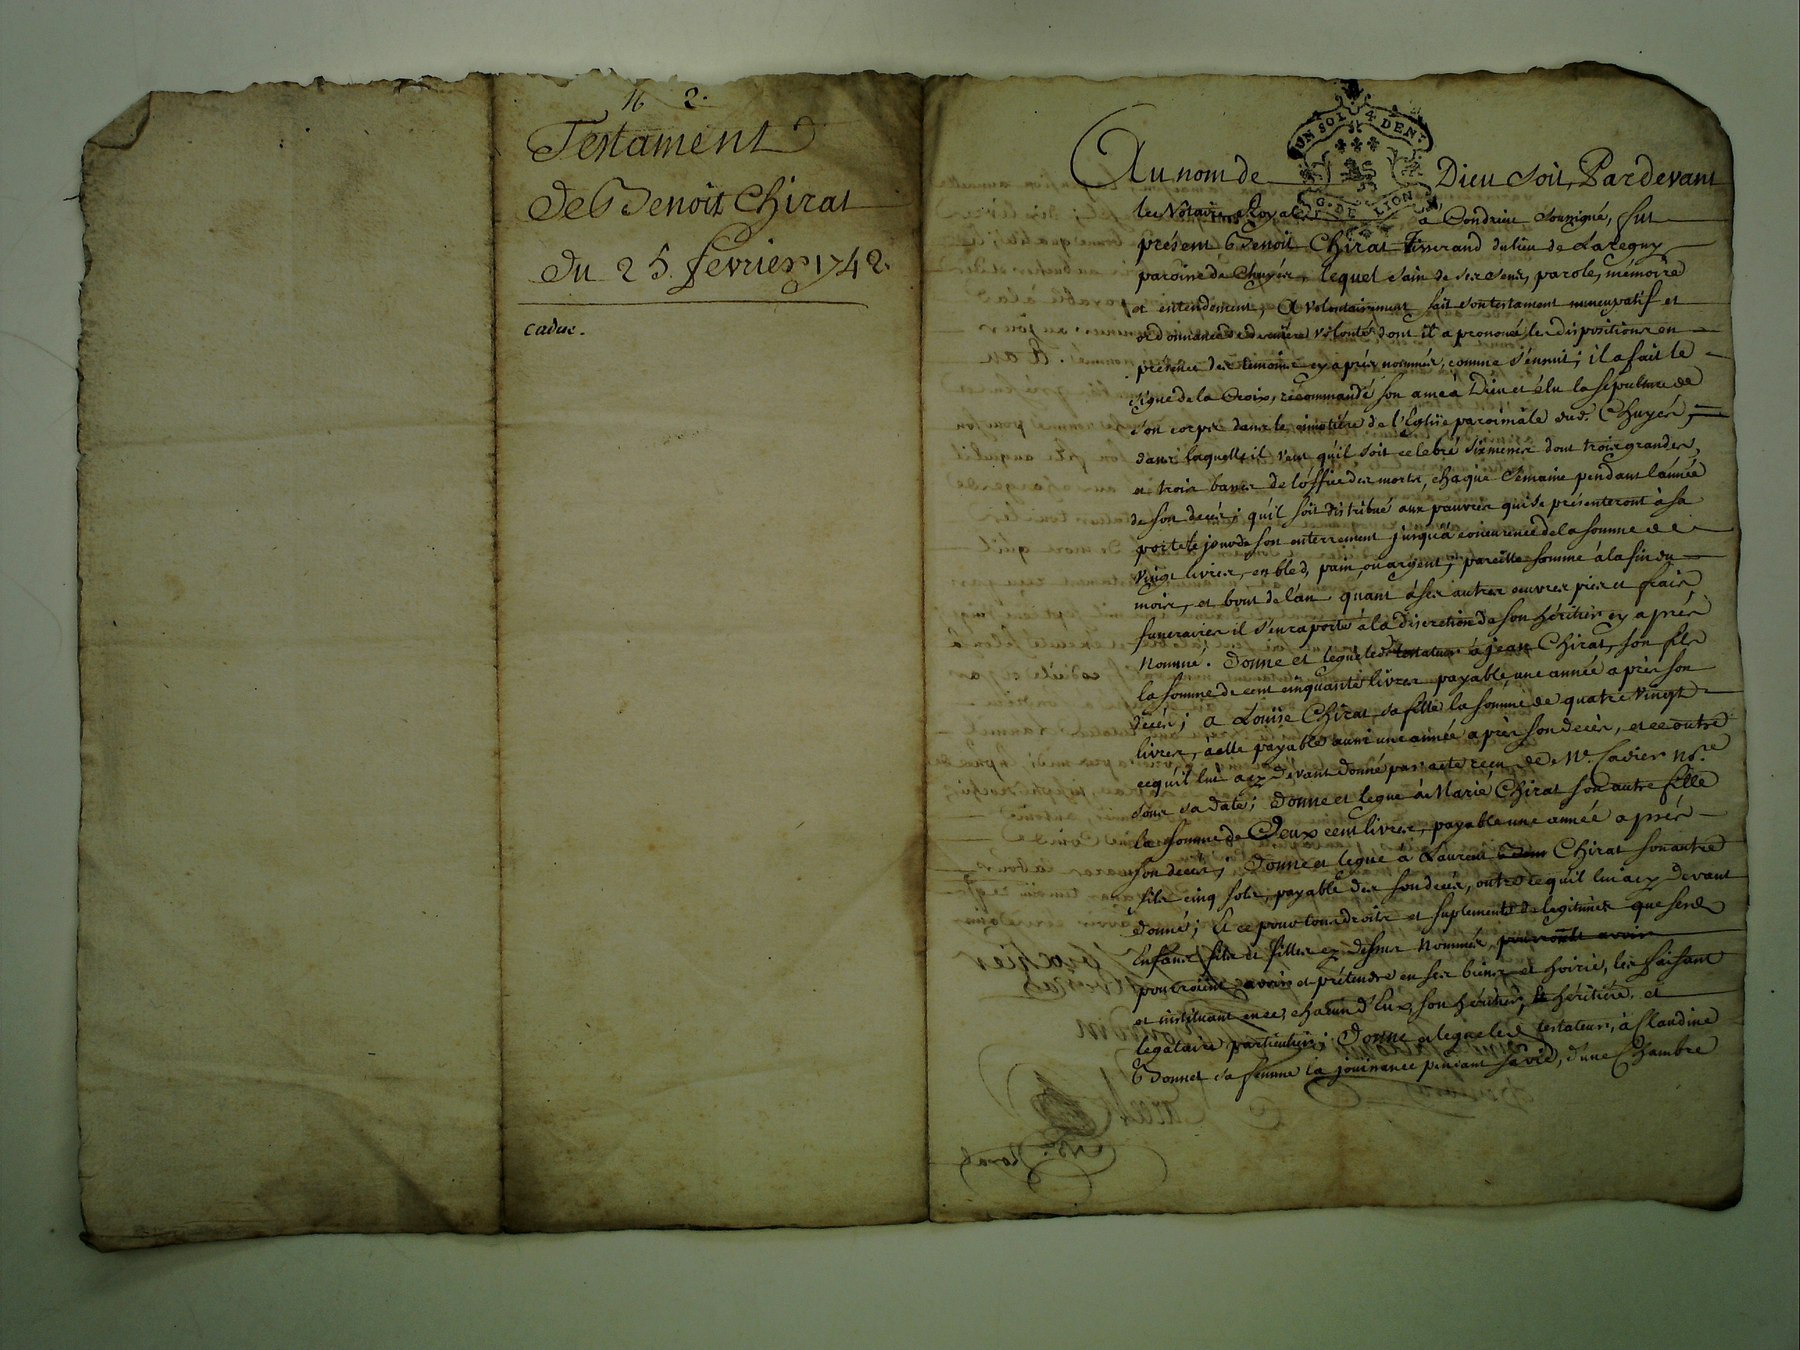 N 2.
Testament
de Benoit Chirat
du 25. fevrier 1742.
caduc.
UN SOL 4 DEN.
G. DE LION
Au nom de Dieu soit, Pardevant
le Notaire Royal a Condrieu soussigné, fut
présent Benoit Chirat Tisserand du lieu de Lareguy
paroisse de Chuyer, lequel sain de ses sens, parole, mémoire
et entendement, A volontairement fait son testament nuncupatif et
ordonnance de derniere volonté dont il a prononcé les dispositions en
présence des témoins cy après nommés, comme s'ensuit; il a fait le
signe de la Croix, recommandé son ame à Dieu et élu la sépulture de
son corps dans le cimetière de l'Eglise paroissiale dud. Chuyer,
dans laquelle il veut qu'il soit celebré six messes dont trois grandes,
et trois basses de l'office des morts, chaque semaine pendant l'année
de son decès; qu'il soit distribué aux pauvres qui se présenteront à sa
porte le jour de son enterrement jusqu'à concurrence de la somme de
vingt livres, en bled, pain, ou argent; pareille somme à la fin du
mois, et bout de l'an quant à ses autres oeuvres pies et frais
funeraires il s'en raporte à la discretion de son héritier cy après
Nommé. Donne et legue led. testateur à jean Chirat, son fils
la somme de cent cinquante livres payable une année après son
decès; a Louise Chirat, sa fille la somme de quatre vingt
livres, à elle payable aussi une année après son decès, et ce outre
ce qu'il lui a cy devant donné par acte reçu de Me. Cadier No.re
sous sa date; Donne et legue à Marie Chirat son autre fille
la somme de Deux cent livres, payable une année après
son decès; Donne et legue à Laurent Chirat son autre
fils cinq sols, payable dès son decès, outre ce qu'il lui a cy devant
donné; Et ce pour tous droits et suplement de legitimes que sesd.
Enfans fils et filles cy dessus Nommés,
pourroient avoir et prétendre en ses biens et hoirie, les faisant
et instituant en ce, chacun d'Eux, son héritier, héritière, et
legataire particulier; Donne et legue led. testateur, à Claudine
Bonnet sa femme la jouissance pendant sa vie, d'une Chambre